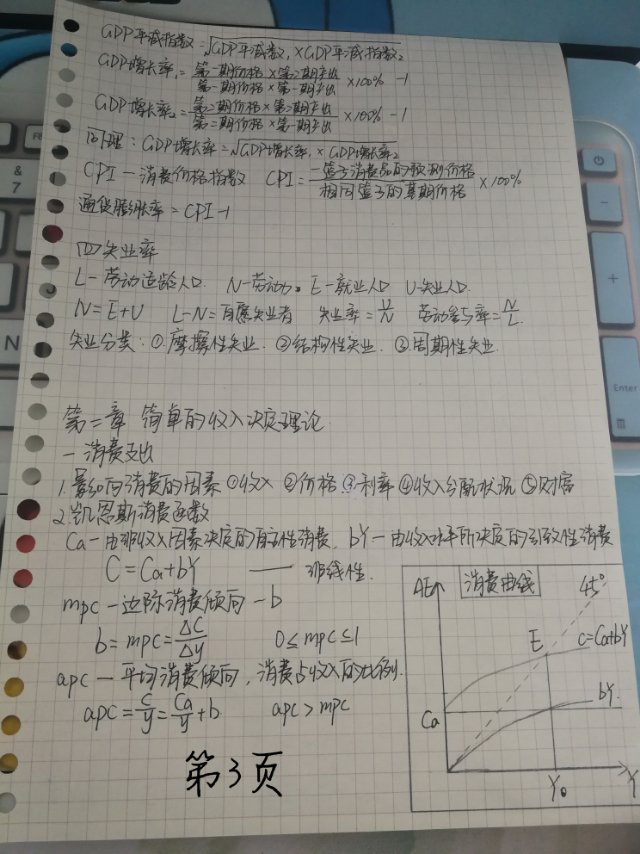 GDP平减指数=√GDP平减指数₁×GDP平减指数₂
GDP增长率₁=第一期价格×第二期产出/第一期价格×第一期产出×100%-1
GDP增长率₂=第二期价格×第二期产出/第二期价格×第一期产出×100%-1
同理:GDP增长率=√GDP增长率₁×GDP增长率₂
CPI—消费价格指数 CPI=一篮子消费品的现期价格/相同篮子的基期价格×100%
通货膨胀率=CPI-1
四失业率
L-劳动适龄人口. N-劳动力. E-就业人口 U-失业人口.
N=E+U L-N=自愿失业者 失业率=U/N 劳动参与率=N/L.
失业分类:①摩擦性失业.②结构性失业.③周期性失业.
第二章 简单的收入决定理论
一消费支出
1.影响消费的因素①收入②价格③利率④收入分配状况⑤财富
2.凯恩斯消费函数
Ca-由非收入因素决定的自主性消费. bY-由收入水平所决定的引致性消费
C=Ca+bY —— 非线性.
mpc-边际消费倾向-b
b=mpc=ΔC/Δy 0≤mpc≤1
apc—平均消费倾向,消费占收入的比例.
apc=C/y=Ca/y+b apc>mpc
AE
消费曲线
45°
E
C=Ca+bY
bY.
Ca
Y₀
Y
第3页
&
7
N
+
-
Enter